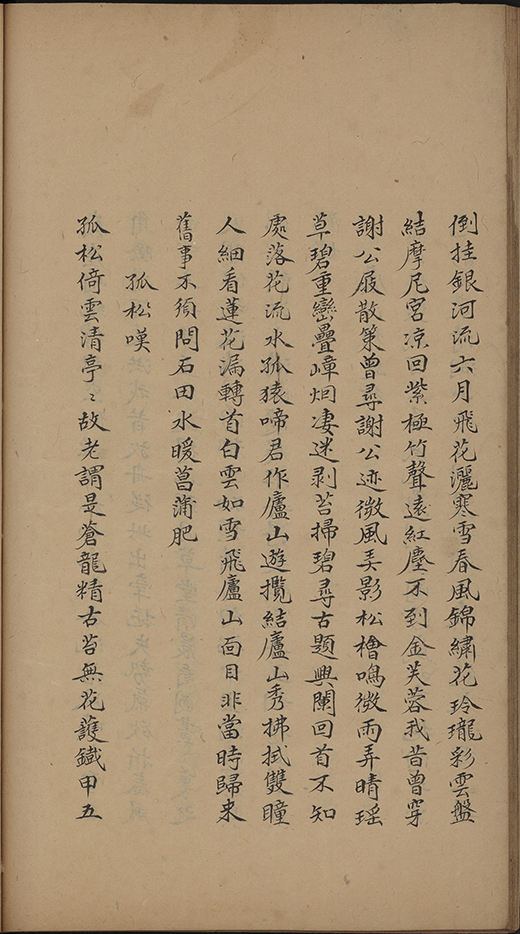 倒挂銀河流六月飛花灑寒雪春風錦繡花玲瓏彩雲盤
結摩尼宮凉回紫極竹聲遠紅塵不到金芙蓉我昔曾穿
謝公屐散策曾尋謝公迹微風美影松檜鳴微雨弄晴瑶
草碧重巒疊嶂烱凄迷剥苔掃碧尋古題興闌回首不知
處落花流水孤猿啼君作廬山遊攬結廬山秀拂拭雙瞳
人細看蓮花漏轉首白雲如雪飛廬山面目非當時歸来
舊事不須問石田水暖菖蒲肥
孤松嘆
孤松倚雲清亭〻故老謂是蒼龍精古苔無花護鐵甲五